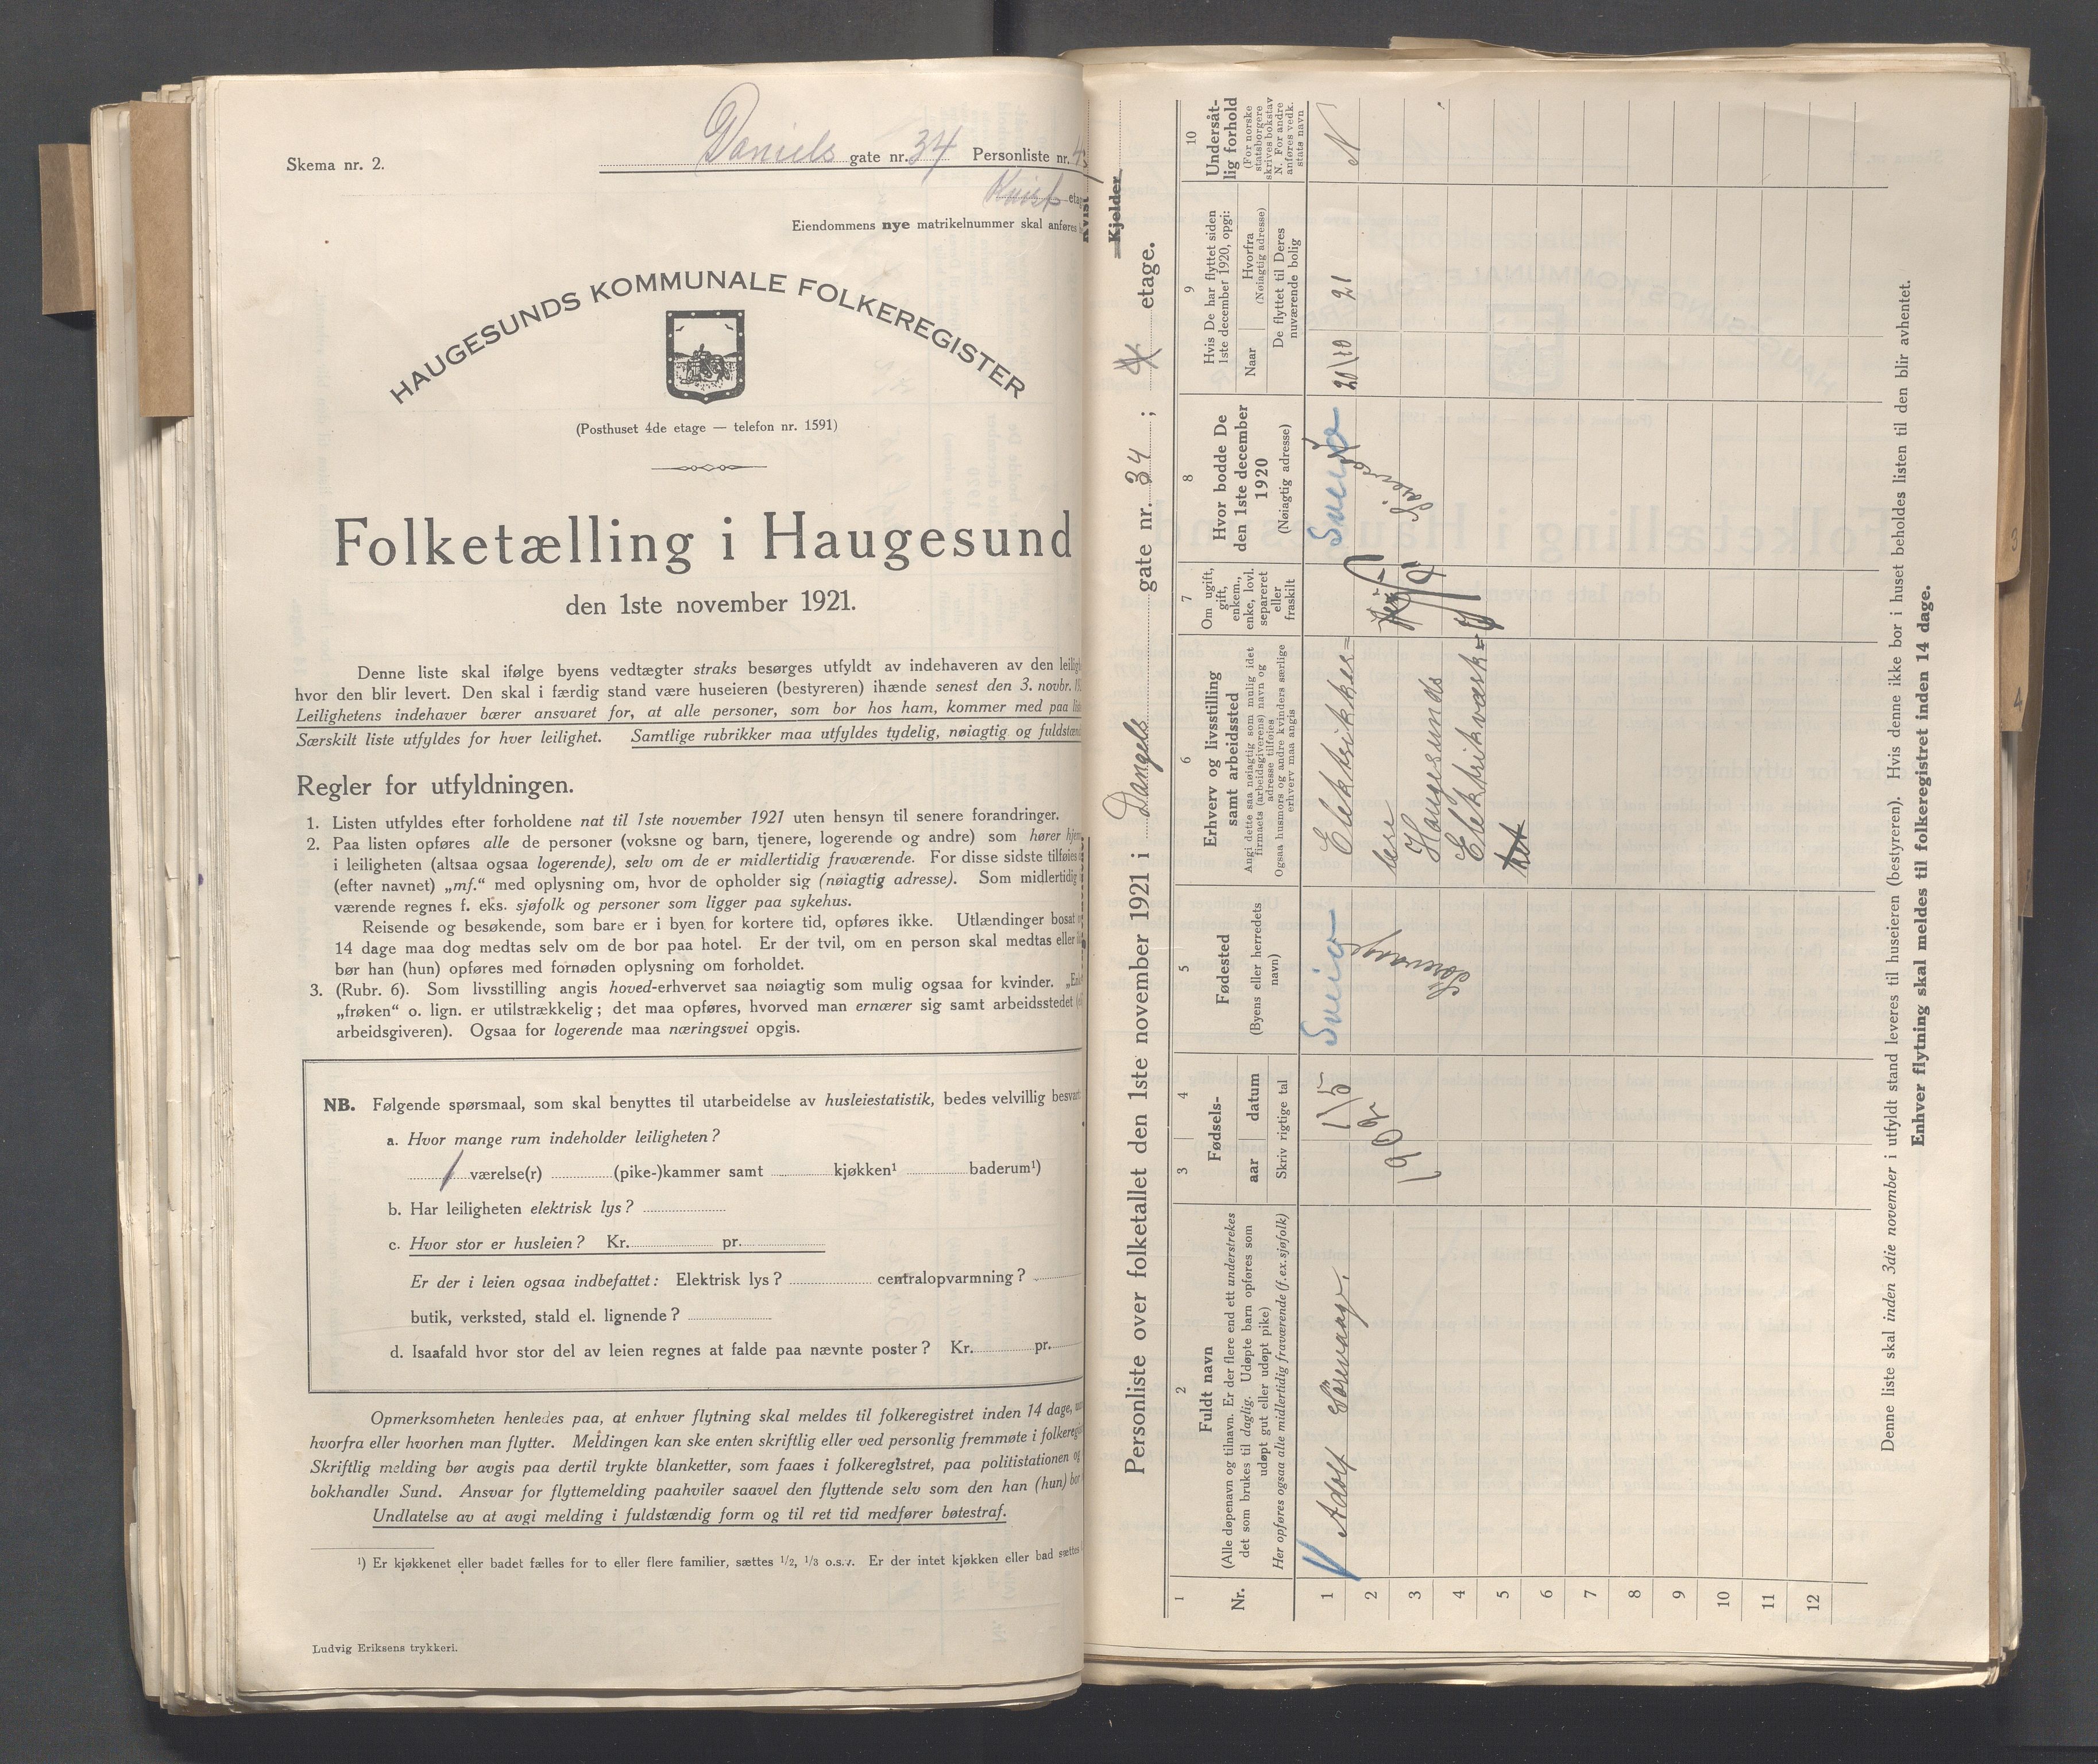 Skema nr. 2.
Daniels gate nr. 34 Personliste nr. 4
Kvist etage
Eiendommens nye matrikelnummer skal anføres
HAUGESUNDS KOMMUNALE FOLKEREGISTER
(Posthuset 4de etage — telefon nr. 1591)
Folketælling i Haugesund
den 1ste november 1921.
Denne liste skal ifølge byens vedtægter straks besørges utfyldt av indehaveren av den leilig
hvor den blir levert. Den skal i færdig stand være huseieren (bestyreren) ihænde senest den 3. novbr. 19
Leilighetens indehaver bærer ansvaret for, at alle personer, som bor hos ham, kommer med paa
Særskilt liste utfyldes for hver leilighet. Samtlige rubrikker maa utfyldes tydelig, nøiagtig og fuldstænd
Regler for utfyldningen.
1. Listen utfyldes efter forholdene nat til 1ste november 1921 uten hensyn til senere forandringer.
2. Paa listen opføres alle de personer (voksne og barn, tjenere, logerende og andre) som hører hjem
i leiligheten (altsaa ogsaa logerende), selv om de er midlertidig fraværende. For disse sidste tilføies
(efter navnet) „mf.“ med oplysning om, hvor de opholder sig (nøiagtig adresse). Som midlertidig
værende regnes f. eks. sjøfolk og personer som ligger paa sykehus.
Reisende og besøkende, som bare er i byen for kortere tid, opføres ikke. Utlændinger bosat
14 dage maa dog medtas selv om de bor paa hotel. Er der tvil, om en person skal medtas eller
bør han (hun) opføres med fornøden oplysning om forholdet.
3. (Rubr. 6). Som livsstilling angis hoved-erhvervet saa nøiagtig som mulig ogsaa for kvinder. „En
„frøken“ o. lign. er utilstrækkelig; det maa opføres, hvorved man ernærer sig samt arbeidsstedet
arbeidsgiveren). Ogsaa for logerende maa næringsvei opgis.
NB. Følgende spørsmaal, som skal benyttes til utarbeidelse av husleiestatistik, bedes velvillig besvart
a. Hvor mange rum indeholder leiligheten?
1 værelse(r) (pike-)kammer samt kjøkken¹ baderum¹)
b. Har leiligheten elektrisk lys?
c. Hvor stor er husleien? Kr. pr.
Er der i leien ogsaa indbefattet: Elektrisk lys? centralopvarmning?
butik, verksted, stald el. lignende?
d. Isaafald hvor stor del av leien regnes at falde paa nævnte poster? Kr. pr.
Opmerksomheten henledes paa, at enhver flytning skal meldes til folkeregistret inden 14 dage,
hvorfra eller hvorhen man flytter. Meldingen kan ske enten skriftlig eller ved personlig fremmøte i folkeregi
Skriftlig melding bør avgis paa dertil trykte blanketter, som faaes i folkeregistret, paa politistationen og
bokhandler Sund. Ansvar for flyttemelding paahviler saavel den flyttende selv som den han (hun) bor
Undlatelse av at avgi melding i fuldstændig form og til ret tid medfører bøtestraf.
¹) Er kjøkkenet eller badet fælles for to eller flere familier, sættes 1/2, 1/3 o.s.v. Er der intet kjøkken eller bad sættes
Ludvig Eriksens trykkeri.
Kvist
Kjelder
Personliste over folketallet den 1ste november 1921 i Dangels gate nr. 34 ; etage.
1 2 3 4 5 6 7 8 9 10
Nr.
Fuldt navn
(Alle døpenavn og tilnavn. Er der flere end ett understrekes
det som brukes til daglig. Udøpte barn opføres som
udøpt gut eller udøpt pike)
Her opføres ogsaa alle midlertidig fraværende (f.ex.sjøfolk)
Fødsels-
aar datum
Skriv rigtige tal
Fødested
(Byens eller herredets
navn)
Erhverv og livsstilling
samt arbeidssted
Angi dette saa nøiagtig som mulig idet
firmaets (arbeidsgiverens) navn og
adresse tilføies
Ogsaa husmors og andre kvinders særlige
erhverv maa angis
Om ugift,
gift,
enkem.,
enke, lovl.
separeret
eller
fraskilt
Hvor bodde De
den 1ste december
1920
(Nøiagtig adresse)
Hvis De har flyttet siden
1ste december 1920, opgi:
Naar
Hvorfra
(Nøiagtig adresse)
De flyttet til Deres
nuværende bolig
Undersåt-
lig forhold
(For norske
statsborgere
skrives bokstav
N. For andre
anføres vedk.
stats navn
1 Adolf Sørevaag. 1/5 Sveio Elektrikker= Sveio 20/10 21 N
1902 Sørevaage
2 lære
3 Haugesunds
4 Elektrikværk=
5 ket
6
7
8
9
10
11
12
Denne liste skal inden 3die november i utfyldt stand leveres til huseieren (bestyreren). Hvis denne ikke bor i huset beholdes listen til den blir avhentet.
Enhver flytning skal meldes til folkeregistret inden 14 dage.
3
4